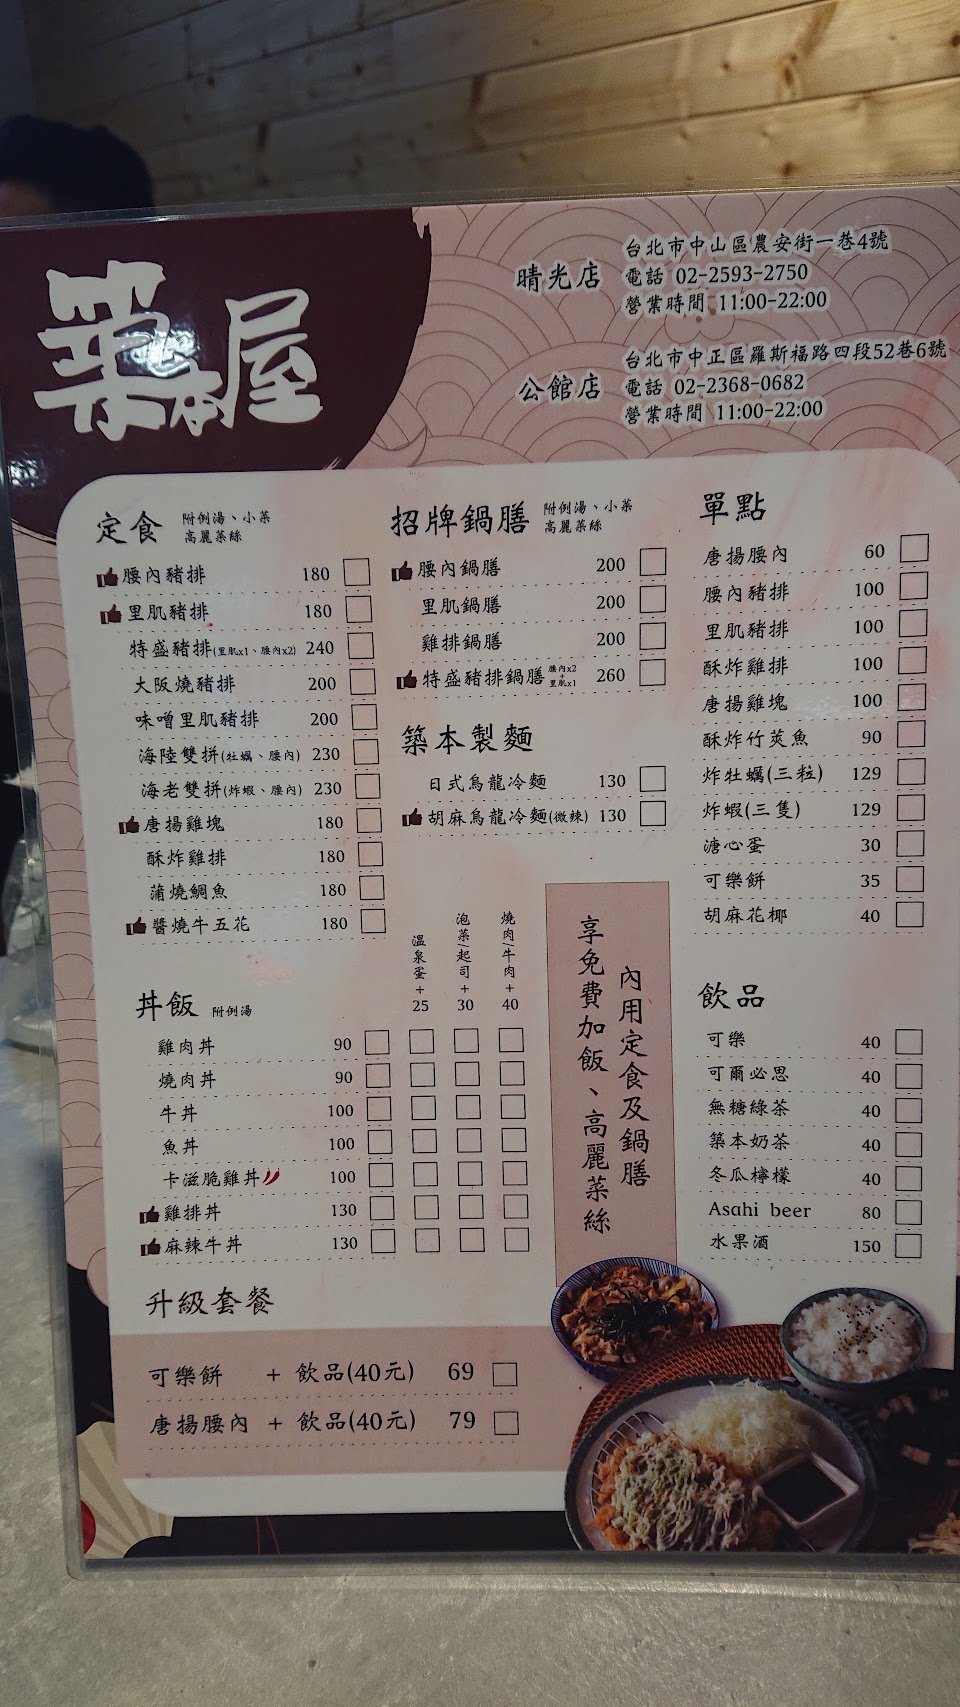 築本屋
晴光店
台北市中山區農安街一巷4號
電話 02-2593-2750
營業時間 11:00-22:00
公館店
台北市中正區羅斯福路四段52巷6號
電話 02-2368-0682
營業時間 11:00-22:00
定食 附例湯、小菜
高麗菜絲
腰內豬排 180
里肌豬排 180
特盛豬排(里肌x1、腰內x2) 240
大阪燒豬排 200
味噌里肌豬排 200
海陸雙拼(牡蠣、腰內) 230
海老雙拼(炸蝦、腰內) 230
唐揚雞塊 180
酥炸雞排 180
蒲燒鯛魚 180
醬燒牛五花 180
招牌鍋膳 附例湯、小菜
高麗菜絲
腰內鍋膳 200
里肌鍋膳 200
雞排鍋膳 200
特盛豬排鍋膳 腰內x2+里肌x1 260
築本製麵
日式烏龍冷麵 130
胡麻烏龍冷麵(微辣) 130
單點
唐揚腰內 60
腰內豬排 100
里肌豬排 100
酥炸雞排 100
唐揚雞塊 100
酥炸竹筴魚 90
炸牡蠣(三粒) 129
炸蝦(三隻) 129
溏心蛋 30
可樂餅 35
胡麻花椰 40
丼飯 附例湯
溫泉蛋+25
泡菜/起司+30
燒肉/牛肉+40
雞肉丼 90
燒肉丼 90
牛丼 100
魚丼 100
卡滋脆雞丼 100
雞排丼 130
麻辣牛丼 130
內用定食及鍋膳
享免費加飯、高麗菜絲
飲品
可樂 40
可爾必思 40
無糖綠茶 40
築本奶茶 40
冬瓜檸檬 40
Asahi beer 80
水果酒 150
升級套餐
可樂餅 + 飲品(40元) 69
唐揚腰內 + 飲品(40元) 79